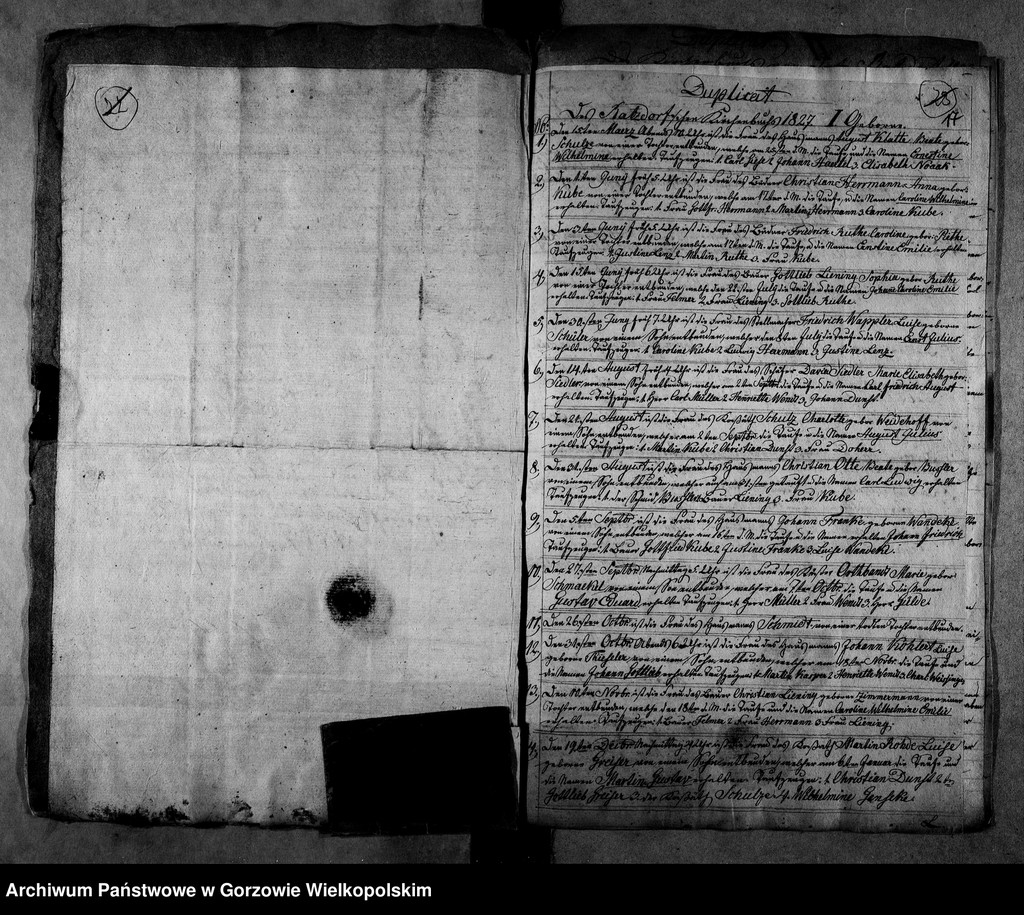 24
28
14
Duplicat
Des Ratzdorfschen Kirchenbuchs 1827 I Geborene.
1, Den 15ten Maerz Abends Uhr ist die Frau des Hausmanns August Klatte Beate gebor:
Schulze von einer Tochter entbunden, welche am 25sten d. M. die Taufe und die Namen Ernestine
Wilhelmine erhalten. Taufzeugen: 1. Carl 2 Johann 3. Elisabeth Noack.
2, Den Juny früh 5 Uhr ist die Frau des Büdner Christian Herrmann Anna gebor:
Kube von einer Tochter entbunden, welche am 17ten d. M. die Taufe, u die Namen Caroline Wilhelmine
erhalten. Taufzeugen: 1. Frau Gottfr: Herrmann 2 Martin Herrmann 3 Caroline Kube.
3, Den Juny früh 5 Uhr ist die Frau des Büdner Friedrich Ruthe Caroline gebor: Rethe
von einer Tochter entbunden, welche am 17ten d. M. die Taufe, u die Namen Ernstine Emilie erhalten
Taufzeugen: 1. Justine Lenz 2 Martin Ruthe 3. Frau Kube.
4, Den 15ten Juny früh 6 Uhr ist die Frau des Bauer Gottlieb Liening Sophia gebor: Ruthe
von einer Tochter entbunden, welche den July die Taufe u die Namen Johanne Caroline Emilie
erhalten Taufzeugen: 1 Frau Felmer 2 Frau Liening 3. Gottlieb Ruthe.
5, Den 30sten Juny früh 7 Uhr ist die Frau des Stellmacher Friedrich Wappler Luise geborne
Schüler von einem Sohn entbunden, welcher den 8ten July die Taufe u die Namen Ernst Julius
erhalten. Taufzeugen: 1 Caroline Kube 2 Ludwig Harzmann 3 Justine Lenz.
6, Den 14ten August früh 4 Uhr ist die Frau des Schäfer David Siedler Marie Elisabeth gebor:
Siedler, von einem Sohn entbunden, welcher am 2ten Septbr die Taufe u die Namen Carl Friedrich August
erhalten: Taufzeugen: 1 Herr Carl Müller 2 Henriette 3. Johann Dunst.
7, Den August ist die Frau des Kossäth Schulz Charlotte gebor: Weidehoff von
einem Sohn entbunden, welcher am 2ten Septbr die Taufe u die Namen August Julius
erhalten Taufzeugen: 1. Martin Kube 2 Christian Dunst 3. Frau
8, Den 31sten August ist die Frau des Hausmanns Christian Otte Beate gebor:
von einem Sohn entbunden, welcher getauft u die Namen Carl Ludwig erhalten
Taufzeugen: 1. der Schmid 2 Bauer Liening 3. Frau Kube.
9, Den 5ten Septbr ist die Frau des Hausmanns Johann Franke geborne Wandeke
von einem Sohn entbunden, welcher am 16ten d. M. die Taufe u die Namen erhalten Johann Friedrich
Taufzeugen: 1. Bauer Gottfried Kube 2 Justine Franke 3. Luise Wandeke.
10, Den 27sten Septbr Nachmittags 5 Uhr ist die Frau des Küster Orthband Marie gebor:
Schmaekel von einem Sohn entbunden, welcher am 7ten Octbr die Taufe u die Namen
Gustav Eduard erhalten Taufzeugen: 1. Herr Müller 2 Frau 3. Herr Gilde.
11, Den 26sten Octbr ist die Frau des Hausmanns Schmidt, von einer todten Tochter entbunden.
12, Den 31sten Octbr Abends 6 Uhr ist die Frau des Hausmanns Johann Luise
geborne von einem Sohn entbunden, welcher am 18ten Novbr die Taufe und
die Namen Johann Gottlieb erhalten Taufzeugen: 1. Martin Kasper 2 Henriette 3.
13, Den 10ten Novbr ist die Frau des Bauer Christian Liening geborne Zimmermann von einer
Tochter entbunden, welche den 18ten d. M. die Taufe und die Namen Caroline Wilhelmine Emilie
erhalten. Taufzeugen: 1. Bauer Felmer 2 Frau Herrmann 3 Frau Liening.
14, Den 19ten Decbr Nachmittag 4 Uhr ist die Frau des Kossäth Martin Rohde Luise
geborne Greiser von einem Sohn entbunden, welcher am 6ten Januar die Taufe und
die Namen Martin Gustav erhalten Taufzeugen: 1. Christian Dunst 2
Gottlieb Greiser 3. der Kossäth Schulze 4. Wilhelmine Janseke.
Archiwum Państwowe w Gorzowie Wielkopolskim